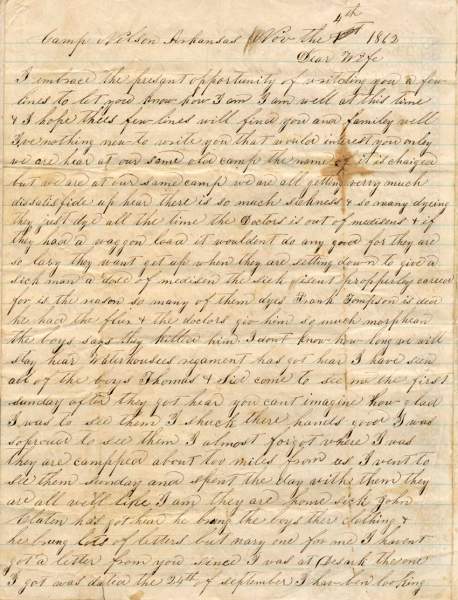 Camp Nelson Arkansas Nov the 4th 1862
Dear Wife
I embrace the presant opportunity of writeing you a few
lines to let you know how I am I am well at this time
& I hope thees few lines will find you and familey well
I've nothing new to write you that would interest you onley
we are hear at our same old camp the name of it is changed
but we are at our same camp we are all getting verry much
dissatisfide up hear there is so much sickness & so many dyeing
they just dye all the time the Doctors is out of medisens & if
they had a waggon load it wouldent do any good for they are
so lazy they want get up when they are setting down to give a
sick man a dose of medisen the sick dont propperley caired
for is the reason so many of them dyes Frank Tompson is dead
he had the flux & the doctors giv him so much morphean
the boys says they killed him I dont know how long we will
stay hear Waterhouses regament has got hear I have seen
all of the boys Thomas & Sid come to see me the first
sunday after they got hear you cant imagine how glad
I was to see them I shuck there hands good I was
so proud to see them I almost forgot where I was
they are campped about too miles from us I went to
see them Sunday and spent the day withs them they
are all well like I am they are home sick John
Claton has got hear he brung the boys ther clothing &
he brung lots of letters but nary one for me I havent
got a letter from you since I was at Desark the one
I got was dated the 24th of september I hav ben looking